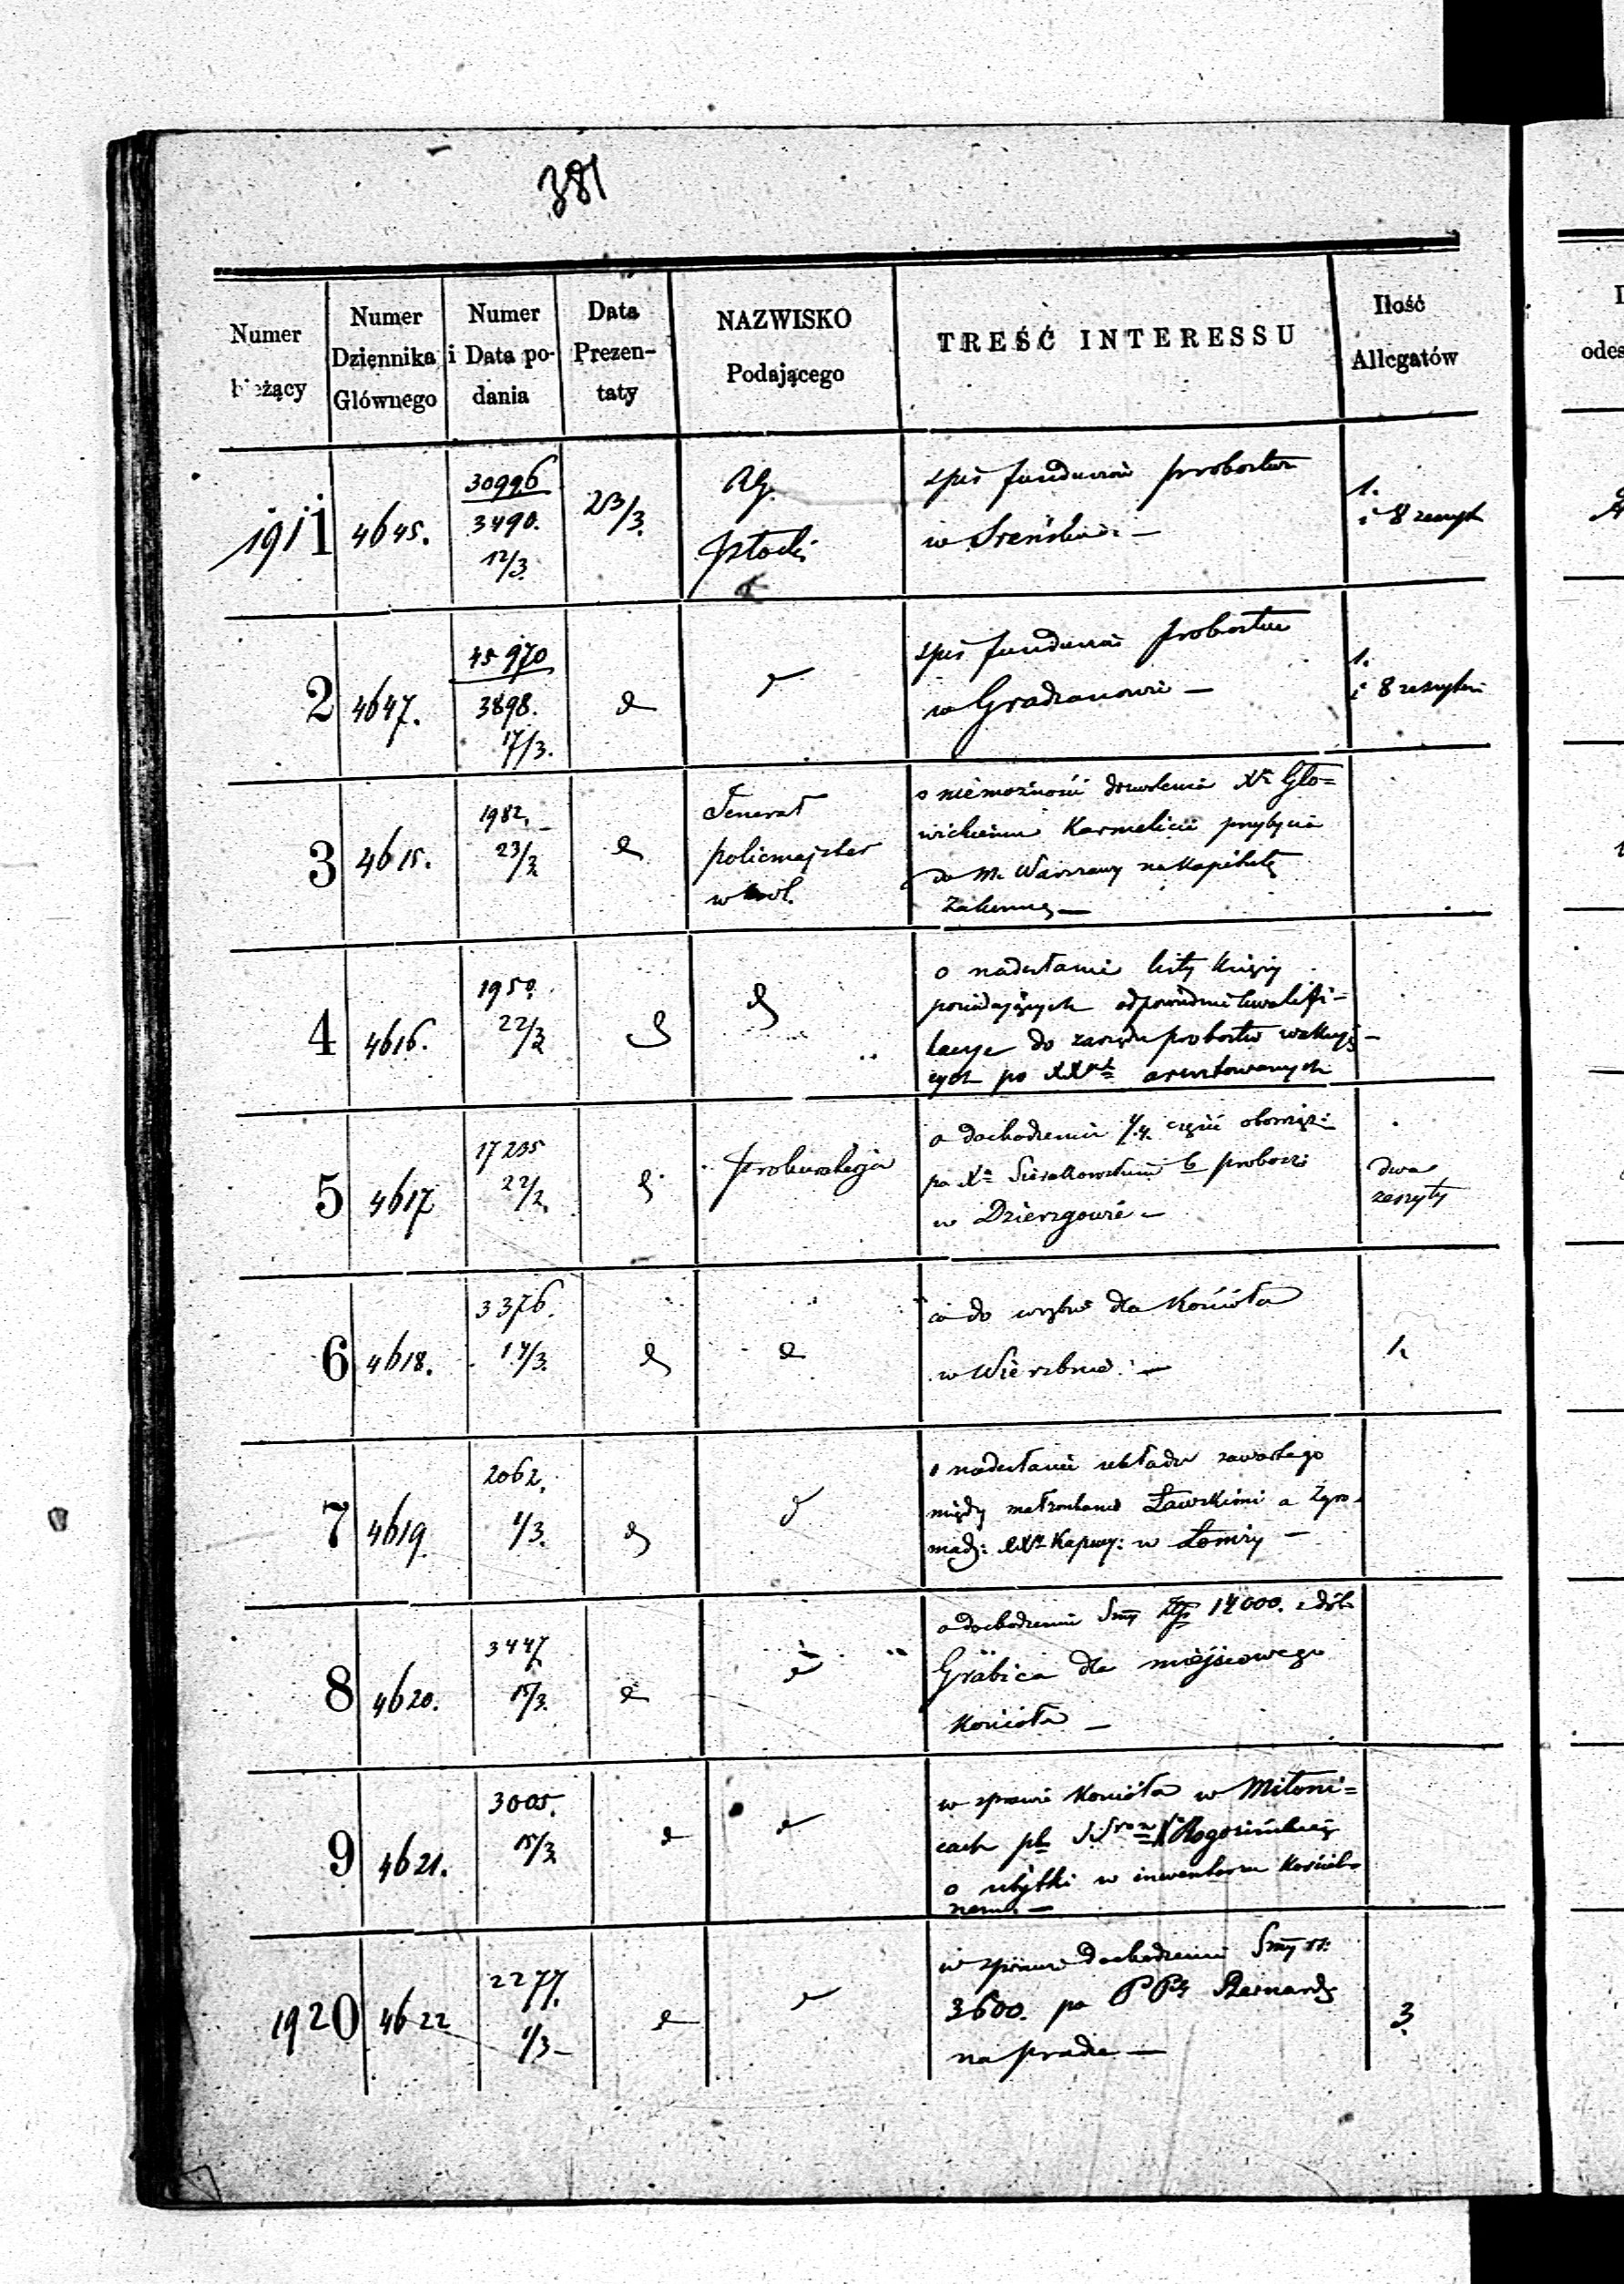 381
Numer
bieżący
Numer
Dziennika
Głównego
Numer
i Data po-
dania
Data
Prezen-
taty
NAZWISKO
Podającego
TREŚĆ INTERESSU
Ilość
Allegatów
1911
4645.
30996
3490.
12/3.
23/3.
RG.
Płocki
spis funduszów probostwa
w Sreńsku —
1.
i 8 zeszyt
2
4647.
45970
3898.
17/3.
spis funduszów probostwa
w Gradzanowie —
1.
i 8 zeszytów
3
4615.
1982.
23/3
Jenerał
policmajster
w
o niemożności dozwolenia Xu Gło=
wickiemu Karmelicie przybycia
do M. Warszawy na Kapitułę
Zakonną —
4
4616.
1950.
22/3
o nadesłanie listy Księży
posiadających odpowiednie kwalifi=
kacye do zarządu probostw wakują=
cych po XXach aresztowanych
5
4617
17205
22/2.
Prokuratorja
o dochodzeniu 1/4 część obowiąz:
po Xu Sierakowskim b proboszcz
w Dzierzgowie —
dwa
zeszyty
6
4618.
3376.
17/3.
co do wyzbu dla Kościoła
w Wierzbnie: —
1.
7
4619
2062.
1/3.
o nadesłanie układu zawartego
między małżonkami Ławskiemi a Zgro-
madz: XXów Kapucy: w Łomży —
8
4620.
3447.
15/3.
o dochodzeniu Smy złp 14000. z dóbr
Grabica dla miejscowego
Kościoła —
9
4621.
3005.
15/3
w sprawie Kościoła w Miłoni=
cach pko Rogozińskiej
o ubytki w inwentarzu Kościel=
nemu —
1920
4622
2277.
1/3 —
w sprawie dochodzenia Smy rs:
3600. po P Bernard
na Pradze —
3